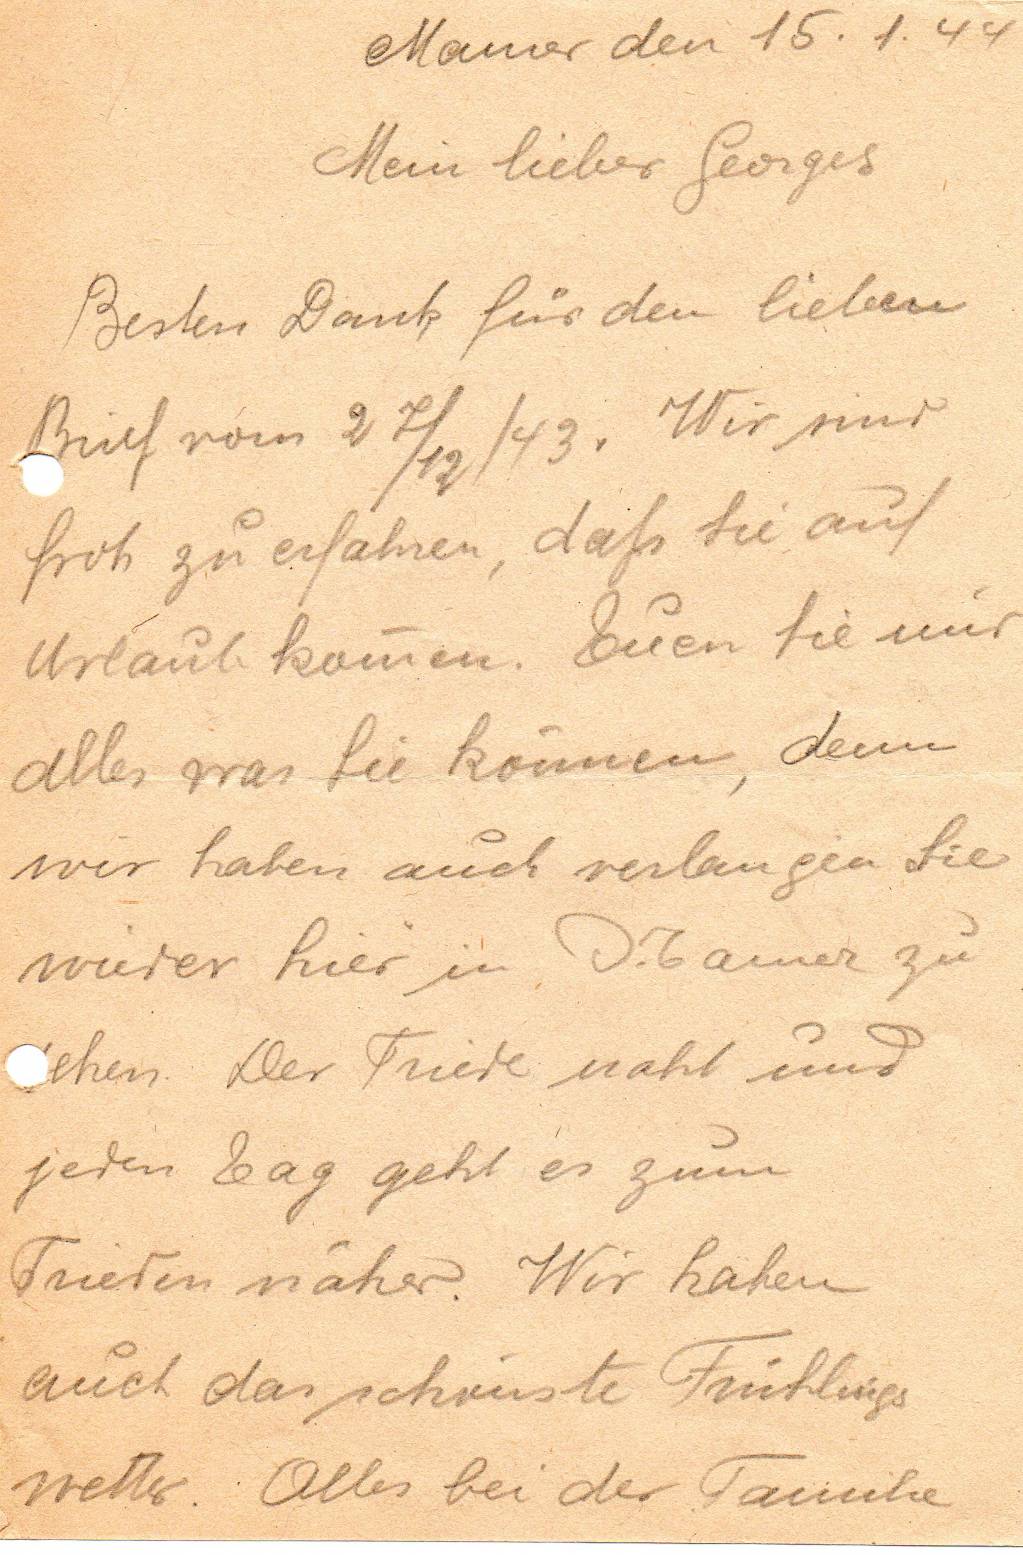 Mamer den 15. 1. 44
Mein lieber Georges
Besten Dank für den lieben
Brief vom 27/12/43. Wir sind
froh zu erfahren, daß Sie auf
Urlaub kom̄en. Tuen Sie nur
alles was Sie können, denn
wir haben auch verlangen Sie
wieder hier in zu
sehen. Der Friede naht und
jeden Tag geht es zum
Frieden näher. Wir haben
auch das schönste Frühlings
wetter. Alles bei der Familie